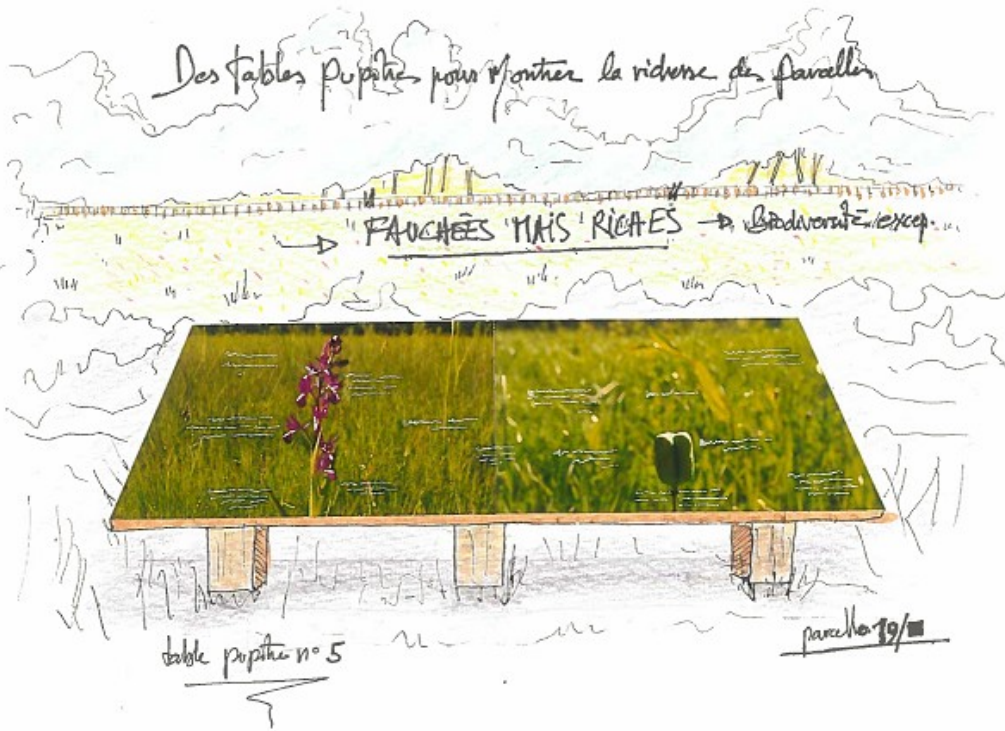 Des tables pupitres pour montrer la richesse des parcelles
→ FAUCHÉES MAIS RICHES → Biodiversité excep.
table pupitre n° 5
parcelle 19/